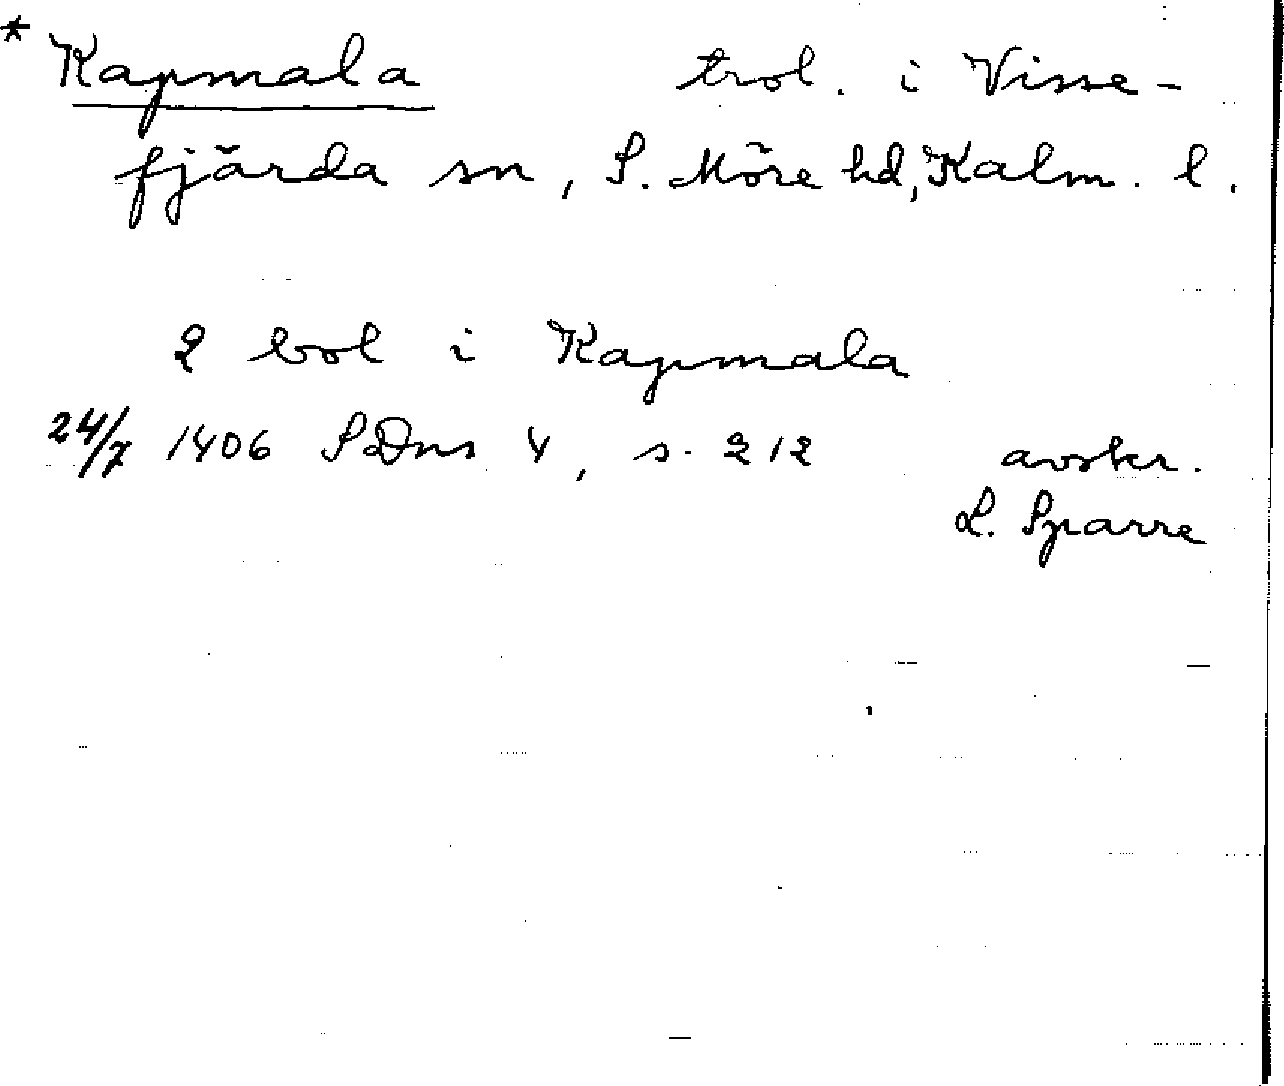 * Kapmala trol. i Visse-
fjärda sn, S. Möre hd, Kalm. l.
2 bol i Kapmala
24/7 1406 SDns 4, s. 212 avskr.
L. Sparre